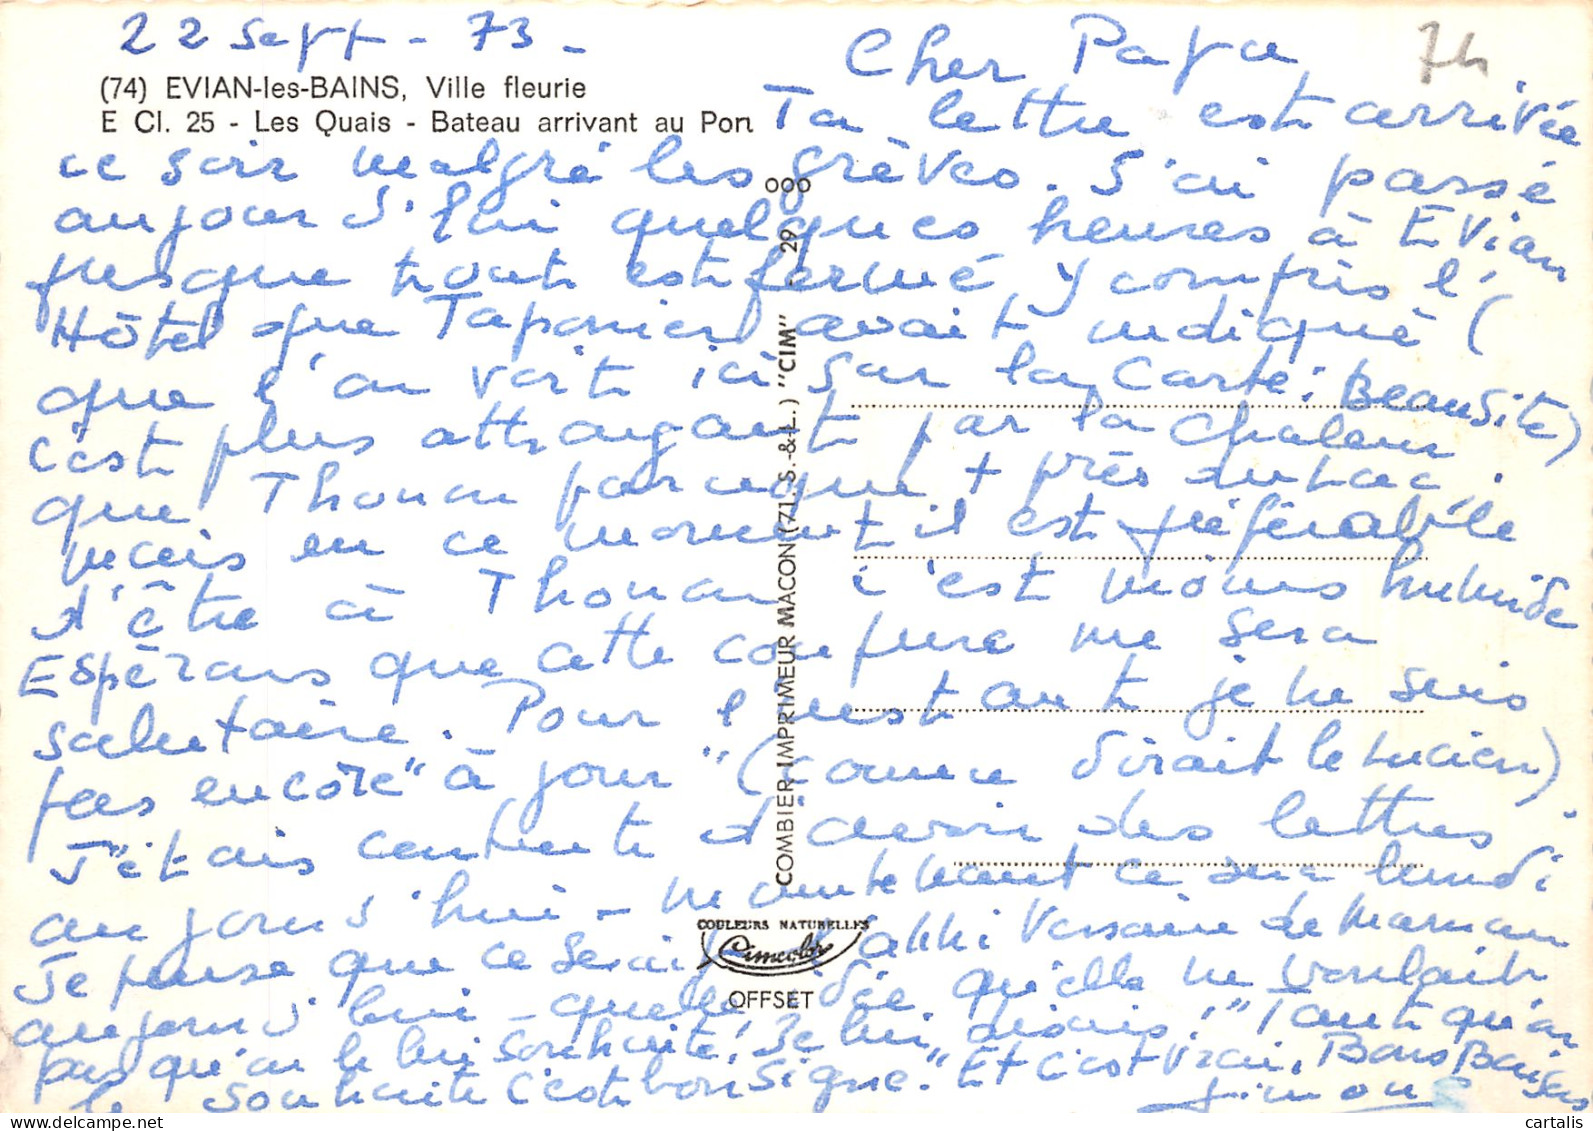 22 Sept - 73 -
(74) EVIAN-les-BAINS, Ville fleurie
E Cl. 25 - Les Quais - Bateau arrivant au Port
Cher Papa
74
Ta lettre est arrivée
ce soir malgré les grèves. J'ai passé
aujourd'hui quelques heures à Evian
presque tout est fermé y compris l'
Hôtel que Taponier avait indiqué (
que l'on voit ici sur la carte : Beausite)
c'est plus attrayant par la chaleur
que Thonon parceque + près du Lac.
mais en ce moment il est préférable
d'être à Thonon c'est moins humide
Espérons que cette cure me sera
salutaire. Pour l'instant je ne suis
pas encore "à jour" (comme dirait le Lucien)
J'étais contente d'avoir des lettres
aujourd'hui - maintenant ce sera lundi
Je pense que ce serait l' anniversaire de Maman
aujourd'hui - quelle idée qu'elle ne voulait
pas qu'on le lui souhaite! Je lui disais! "Tant qu'on
le souhaite c'est bon signe." Et c'est vrai, Bons Baisers
Simone
COMBIER IMPRIMEUR MACON (71. S.-&-L.) "CIM"
29
COULEURS NATURELLES
Cimcolor
OFFSET
www.cartalis.com